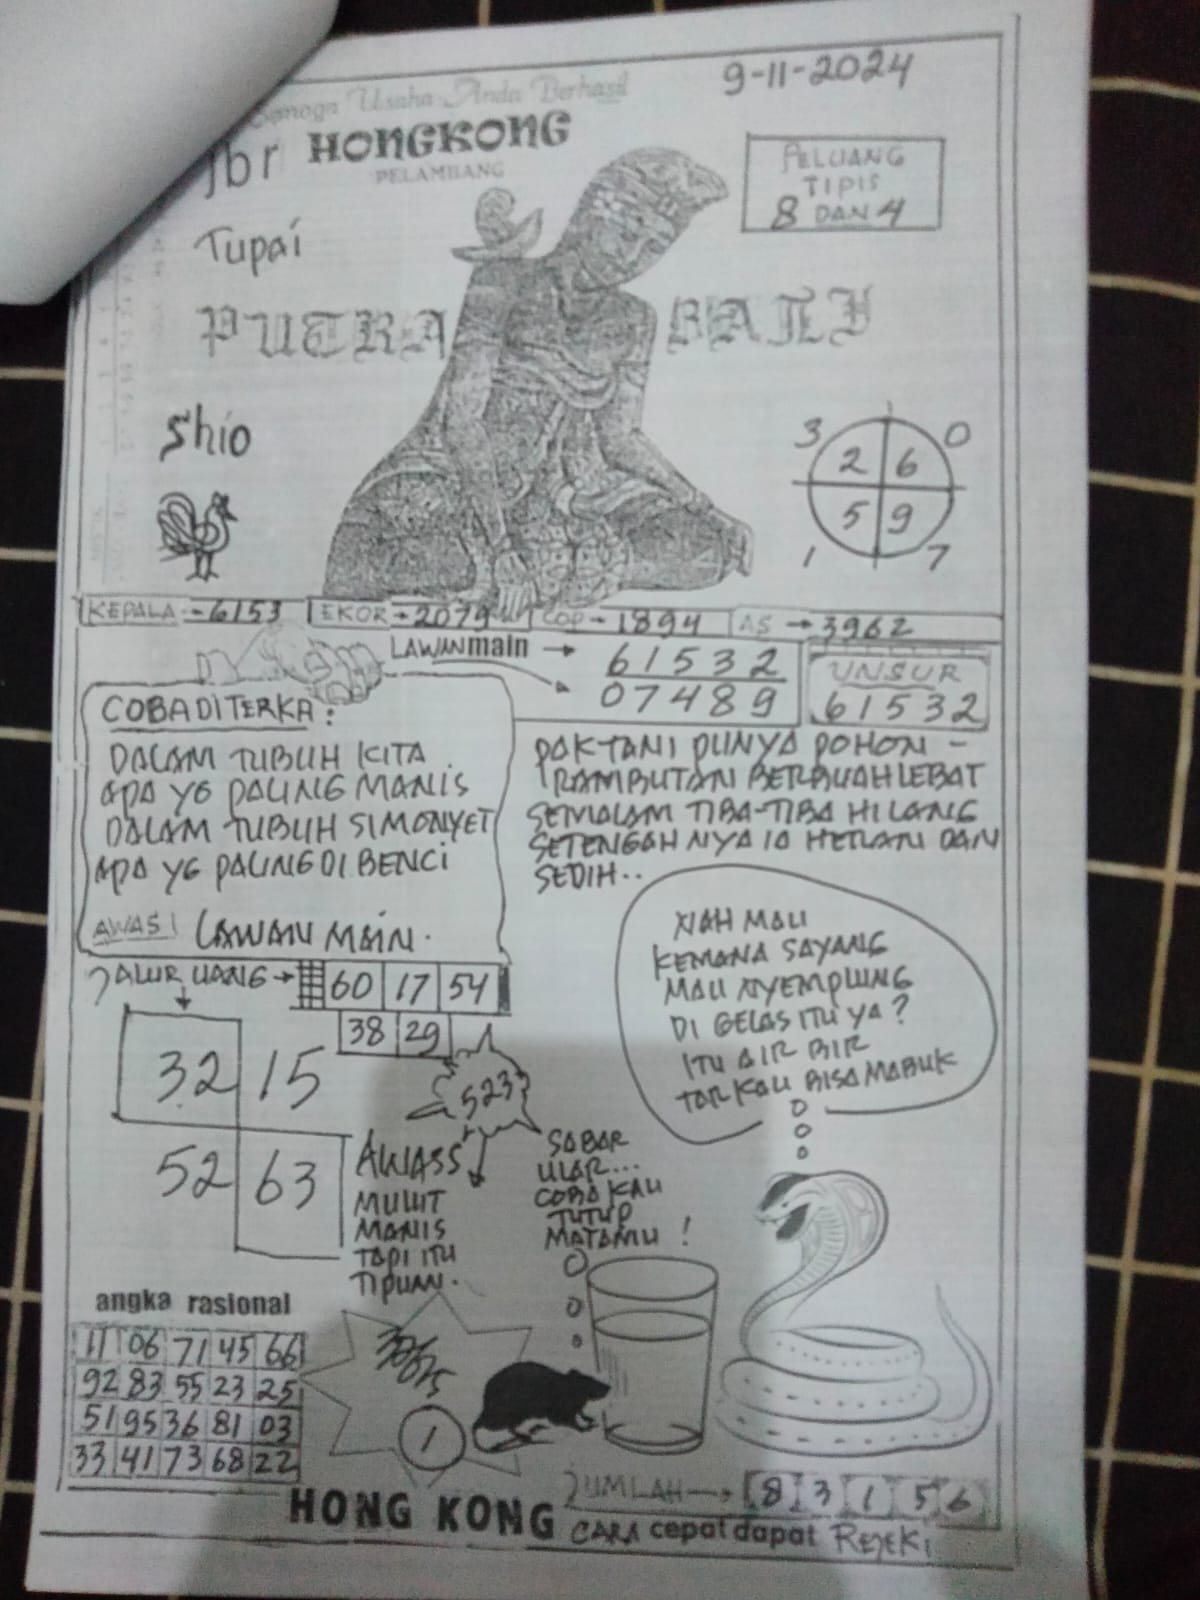 Semoga Usaha Anda Berhasil
9-11-2024
jbr HONGKONG
PELAMBANG
PELUANG
TIPIS
8 DAN 4
Tupai
PUTRA BALI
Shio
3 0
2 6
5 9
1 7
KEPALA → 6153 EKOR → 2079 COP → 1894 AS → 3962
LAWAN main → 61532
07489
UNSUR
61532
COBA DI TERKA :
DALAM TUBUH KITA
APA YG PALING MANIS
DALAM TUBUH SIMONYET
APA YG PALING DI BENCI
AWAS! LAWAN MAIN.
PAK TANI PUNYA POHON -
RAMBUTAN BERBUAH LEBAT
SEMALAM TIBA-TIBA HILANG
SETENGAH NYA IA HERAN DAN
SEDIH..
NAH MAU
KEMANA SAYANG
MAU NYEMPLUNG
DI GELAS ITU YA ?
ITU AIR BIR
TAR KAU BISA MABUK
JALUR UANG → 60 17 54
38 29
32 15
52 63
523
AWASS
MULUT
MANIS
TAPI ITU
TIPUAN.
SABAR
ULAR...
COBA KAU
TUTUP
MATAMU !
angka rasional
11 06 71 45 66
92 83 55 23 25
51 95 36 81 03
33 41 73 68 22
1
JUMLAH → 8 3 1 5 6
HONG KONG CARA cepat dapat REJEKI